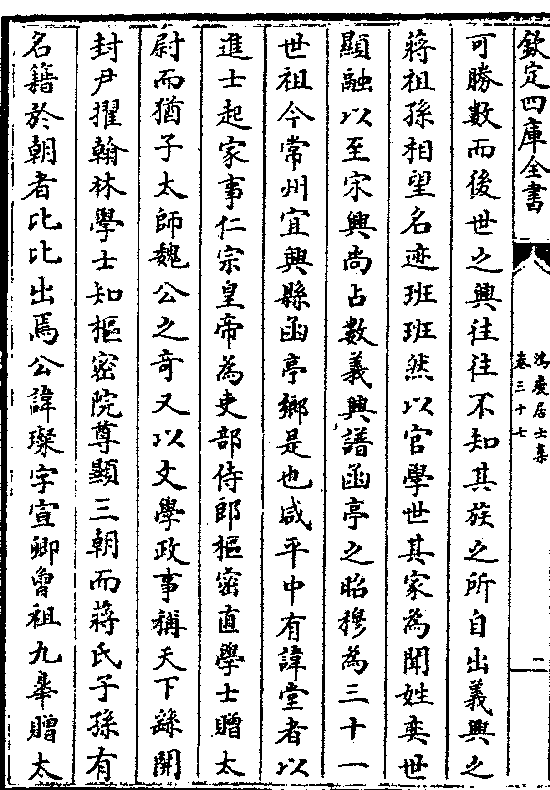 欽定四庫全書
鴻慶居士集
卷三十七
二
可勝數而後世之興往往不知其族之所自出義興之
蔣祖孫相望名迹班班然以官學世其家為聞姓奕世
顯融以至宋興尚占數義興譜函亭之昭穆為三十一
世祖今常州宜興縣函亭鄉是也咸平中有諱堂者以
進士起家事仁宗皇帝為吏部侍郎樞密直學士贈太
尉而猶子太師魏公之奇又以文學政事稱天下繇開
封尹擢翰林學士知樞密院尊顯三朝而蔣氏子孫有
名籍於朝者比比出焉公諱璨字宣卿曾祖九皋贈太